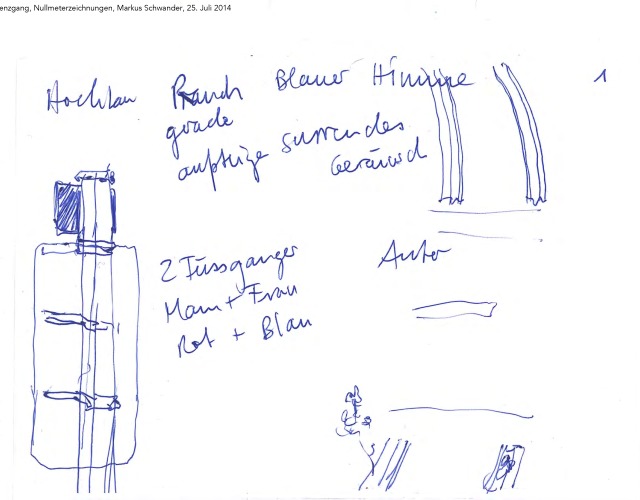 enzgang, Nullmeterzeichnungen, Markus Schwander, 25. Juli 2014
Hochbau Rauch Blauer Himmel 1
grade
aufsteige surrendes
Geräusch
2 Fussgänger Auto
Mann + Frau
Rot + Blau